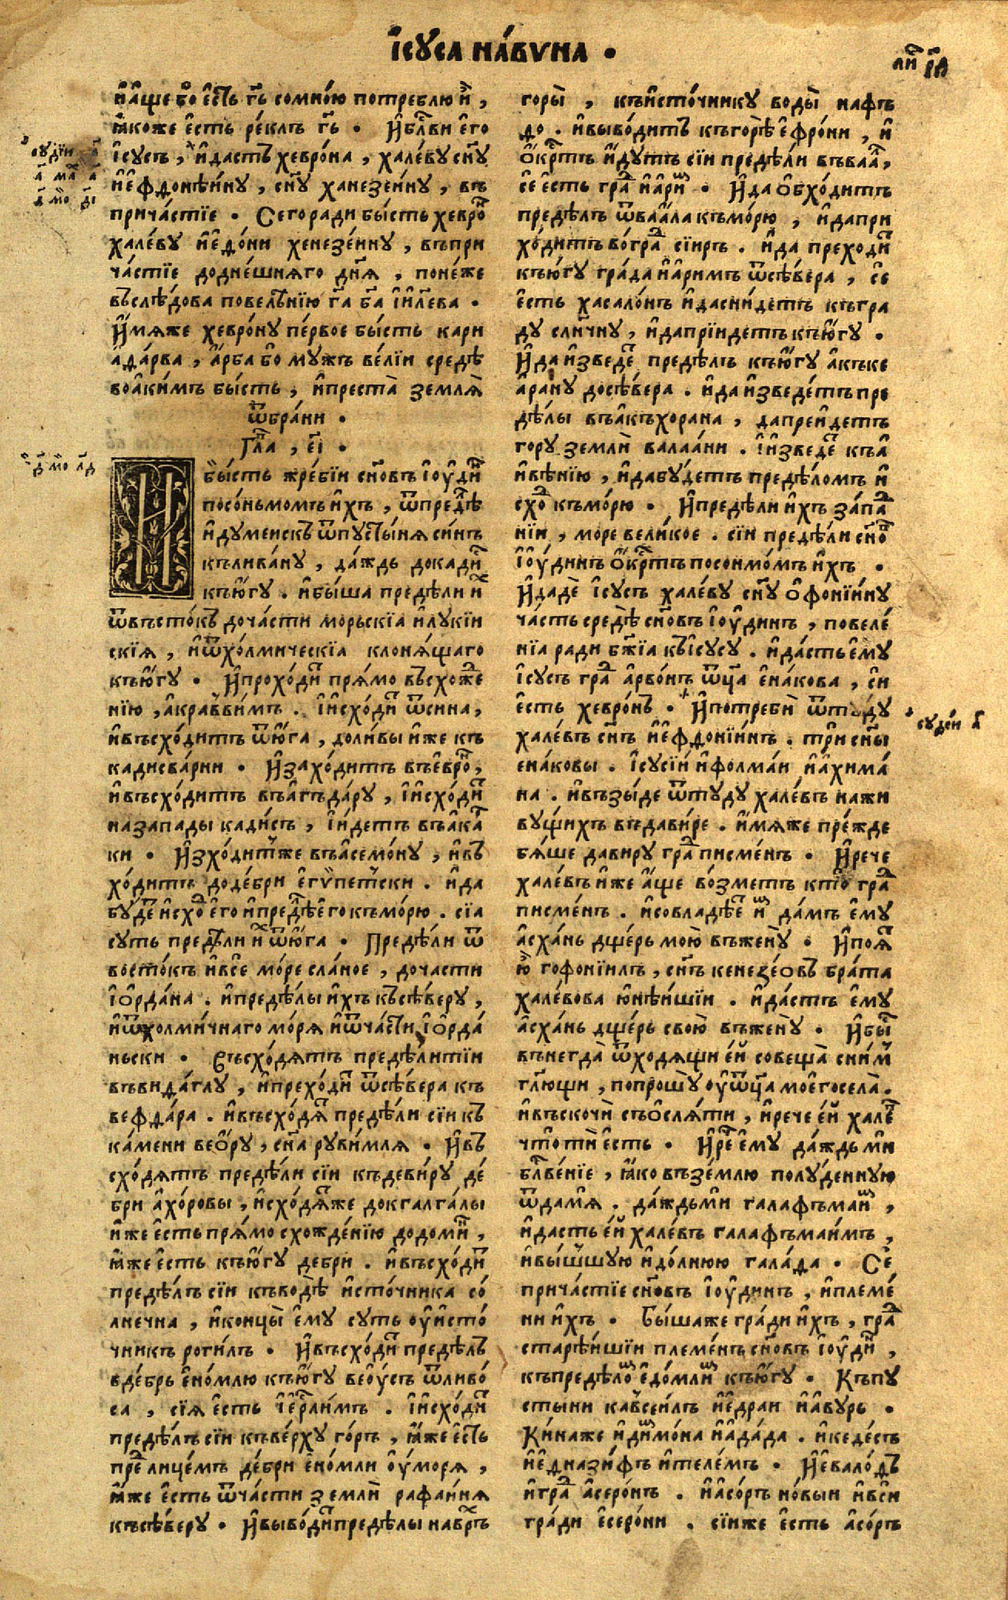 І҆сꙋ́са на́вѵна •
ли҃ г҃і
и҆а҆́ще бо є҆́сть гь҃ сомно́ю потреблю̀ и҆̀ ,
ꙗ҆́коже є҆сть ре́клъ гь҃ • И҆блг҃ви є҆го
і҆сꙋ́съ , и҆да́стъ хевро́на , хале́вꙋ сн҃ꙋ
и҆є҆ффонїи́нꙋ , сн҃ꙋ ханезе́инꙋ , въ
прича́стїе • Сегоради бы́сть хевро́
хале́вꙋ и҆є҆до́ни хенезе́инꙋ , въпри
ча́стїе додне́шняго дн҃я , поне́же
въслѣ́дова повелѣ́нїю г҃а б҃а і҆и҃лева •
И҆́мяже хевро́нꙋ пе́рвое бы́сть кари
а҆да́рва , а҆́рба бо мꙋжъ ве́лїи средѣ̀
воа҆ки́мъ бы́сть , и҆преста̀ земля̀
ѿбра́ни •
Гла҃ , є҃і •
И҆
бы́сть жре́бїи сн҃овъ і҆ѹ́дин
посо́ньмомъ и҆́хъ , ѿпредѣ́
и҆дꙋмеискъ ѿпꙋсты́ня си́нъ
кълива́нꙋ , да́ждь докади
къю҆́гꙋ . и҆бы́ша предѣ́ли и҆
ѿвъсто́къ доча́сти морьскі́а и҆лꙋкїи
скі́я , и҆ѿхо́лмическі́а клоня́щаго
къю҆́гꙋ • И҆прохо́ди пря́мо въсхоже
нїю , а҆кравви́мъ . І҆и҆схо́ди ѿсина ,
и҆въсхо́дитъ ѿю҆́га , доли́вы и҆́же къ
кадисва́рни • И҆захо́дитъ въе҆вро́ ,
и҆въсхо́дитъ въа҆гъда́рꙋ , і҆и҆схо́ди
назапады кади́съ , і҆и҆́детъ въа҆ка
ки • И҆зхо́дитъже въа҆семо́нꙋ , и҆въ
хо́дитъ доде́бри є҆гѵ́петски . и҆да
бꙋ́де и҆схо є҆го и҆предѣ є҆го къмо́рю . сі́а
сꙋть предѣ́ли и҆ ѿю҆́га • Предѣ́ли ѿ
восто́къ и҆всѐ мо́ре сла́ное , доча́сти
і҆ѻ҆рда́на . и҆предѣ́лы и҆́хъ късѣ́верꙋ ,
и҆ѿхолми́чнаго мо́ря и҆ѿча́сти і҆ѻ҆рда́
ньски • Въсхо́дятъ предѣ́ли тїи
въвида́глꙋ , и҆прехо́ди ѿсѣ́вера къ
вефда́ра . и҆въсхо́дя предѣ́ли сїи къ
ка́мени вео҆́рꙋ , сн҃а рꙋви́мля • И҆въ
схо́дятъ предѣ́ли сїи къдеви́рꙋ де́
бри а҆хо́ровы , и҆схо́дяже докгалга́лы
и҆́же є҆сть пря́мо схожде́нїю додоми́ ,
ꙗ҆́же є҆сть къю҆́гꙋ дебри . и҆въсхо́ди
предѣ́лъ сїи къводѣ̀ и҆сто́чника со́
лнечна , и҆концы̀ є҆мꙋ сꙋть ѹ҆и҆сто́
чникъ роги́лъ • И҆въсхо́ди предѣ́лъ
вде́брь є҆но́млю къю҆́гꙋ вео҆ꙋ́съ ѿливо́
са , сі́я є҆сть і҆ер҃ли́мъ . І҆и҆схо́ди
предѣ́лъ сїи къве́рхꙋ го́ръ , ꙗ҆́же є҆́сть
пре́ лице́мъ де́бри є҆но́мли ѹ҆мо́ря ,
ꙗ҆́же є҆сть ѿча́сти землѝ рафаи́ня
късѣ́верꙋ • И҆выво́дипредѣ́лы наврь
горы̀ , къи҆сто́чникꙋ воды̀ нафъ
до . и҆выво́дитъ къго́рѣ є҆фро́ни , и҆
ѻ҆́крть и҆́дꙋтъ сїи предѣ́ли въваа́ ,
се є҆сть гра́ и҆а҆ри́ • И҆да ѻ҆бхо́дитъ
предѣ́лъ ѿваа́ла къмо́рю , и҆дапри
хо́дитъ во́гра сїи́ръ . и҆да преходи
къю҆́гꙋ гра́да и҆а҆римъ ѿсѣ́вера , се
є҆сть хасало́нъ и҆дасни́детъ къгра
дꙋ сли́чнꙋ , и҆даприи́детъ къю҆́гꙋ •
И҆да и҆зведе́ предѣ́лъ къю҆́гꙋ а҆къке
а҆ра́нꙋ досѣ́вера . и҆да и҆зведе́тъ пре
дѣ́лы въа҆къхорана , дапреи́детъ
горꙋ землѝ валаа́ни . І҆и҆зведе́ къа҆
и҆вѣ́нїю , и҆дабꙋ́детъ предѣ́ломъ и҆
схо́ къмо́рю • И҆предѣ́ли и҆́хъ за́па
нїи , мо́ре вели́кое . сїи предѣ́ли сн҃о
і҆ѹ́динъ ѻ҆́крть посонмо́мъ и҆́хъ •
И҆дадѐ і҆сꙋ́съ хале́вꙋ сн҃ꙋ ѻ҆фонїи́нꙋ
ча́сть средѣ̀ сн҃овъ і҆ѹ́динъ , повеле́
нїа ради бж҃їа къі҆сꙋ́сꙋ . и҆да́сть є҆мꙋ
і҆сꙋ́съ гра́ а҆рво́нъ ѿц҃а є҆на́кова , сїи
є҆сть хевро́нъ • И҆потребѝ ѿтꙋ́дꙋ
хале́въ сн҃ъ и҆є҆ффонїи́нъ . три сн҃ы
є҆на́ковы . І҆сꙋсїи и҆фолма́и и҆а҆хима́
на . и҆възы́де ѿтꙋ́дꙋ хале́въ нажи
вꙋ́щихъ въдави́ре . и҆́мяже пре́жде
бя́ше дави́рꙋ гра́ писме́нъ • И҆рече
хале́въ и҆же а҆́ще во́зметъ кто̀ гра́
писме́нъ . и҆совладѣ́е и҆ да́мъ є҆мꙋ
а҆сха́нь дще́рь мою̀ въженꙋ̀ • И҆поꙗ҆
ю҆̀ гофонїи́лъ , сн҃ъ кенезе́овъ бра́та
хале́вова ю҆нѣ́ишїи . и҆да́стъ є҆мꙋ
а҆сха́нь дще́рь свою̀ въженꙋ̀ • И҆бы
вънегда̀ ѿходя́щи є҆и совеща̀ сним
гл҃ющи , попрошꙋ̀ ѹ҆ѿц҃а моего села̀ .
и҆въскочѝ съѻ҆сля́ти , и҆рече є҆и хале́
что тѝ є҆сть • И҆ре є҆мꙋ да́ждь ми
блгⷭ҇ве́нїе , ꙗ҆́ко въ зе́млю полꙋ́деннꙋю
ѿдамя̀ . да́ждьми галафъмаи ,
и҆да́сть є҆и хале́въ галафъмаи́мъ ,
и҆вы́шшꙋю и҆до́лнюю гала́да • Се
прича́стїе сн҃овъ і҆ѹ́динъ , и҆племе́
ни и҆́хъ • Бы́шаже гра́ди и҆́хъ , гра́
старѣ́ишїи племе́нъ сн҃овъ і҆ѹ́ди ,
къпредѣ́ло є҆до́мли къю҆́гꙋ • Къпꙋ
стыни кавсеи́лъ и҆є҆драи и҆а҆вꙋръ •
Ки́наже и҆ди́мо́на и҆а҆да́да . и҆кедесъ
и҆є҆дназифъ и҆теле́мъ • И҆евало́дъ
и҆гра́ а҆серо́нъ . и҆а҆со́ръ но́выи и҆вси
гра́ди є҆серо́ни . сїиже є҆сть а҆со́ръ
сꙋдеи а҃